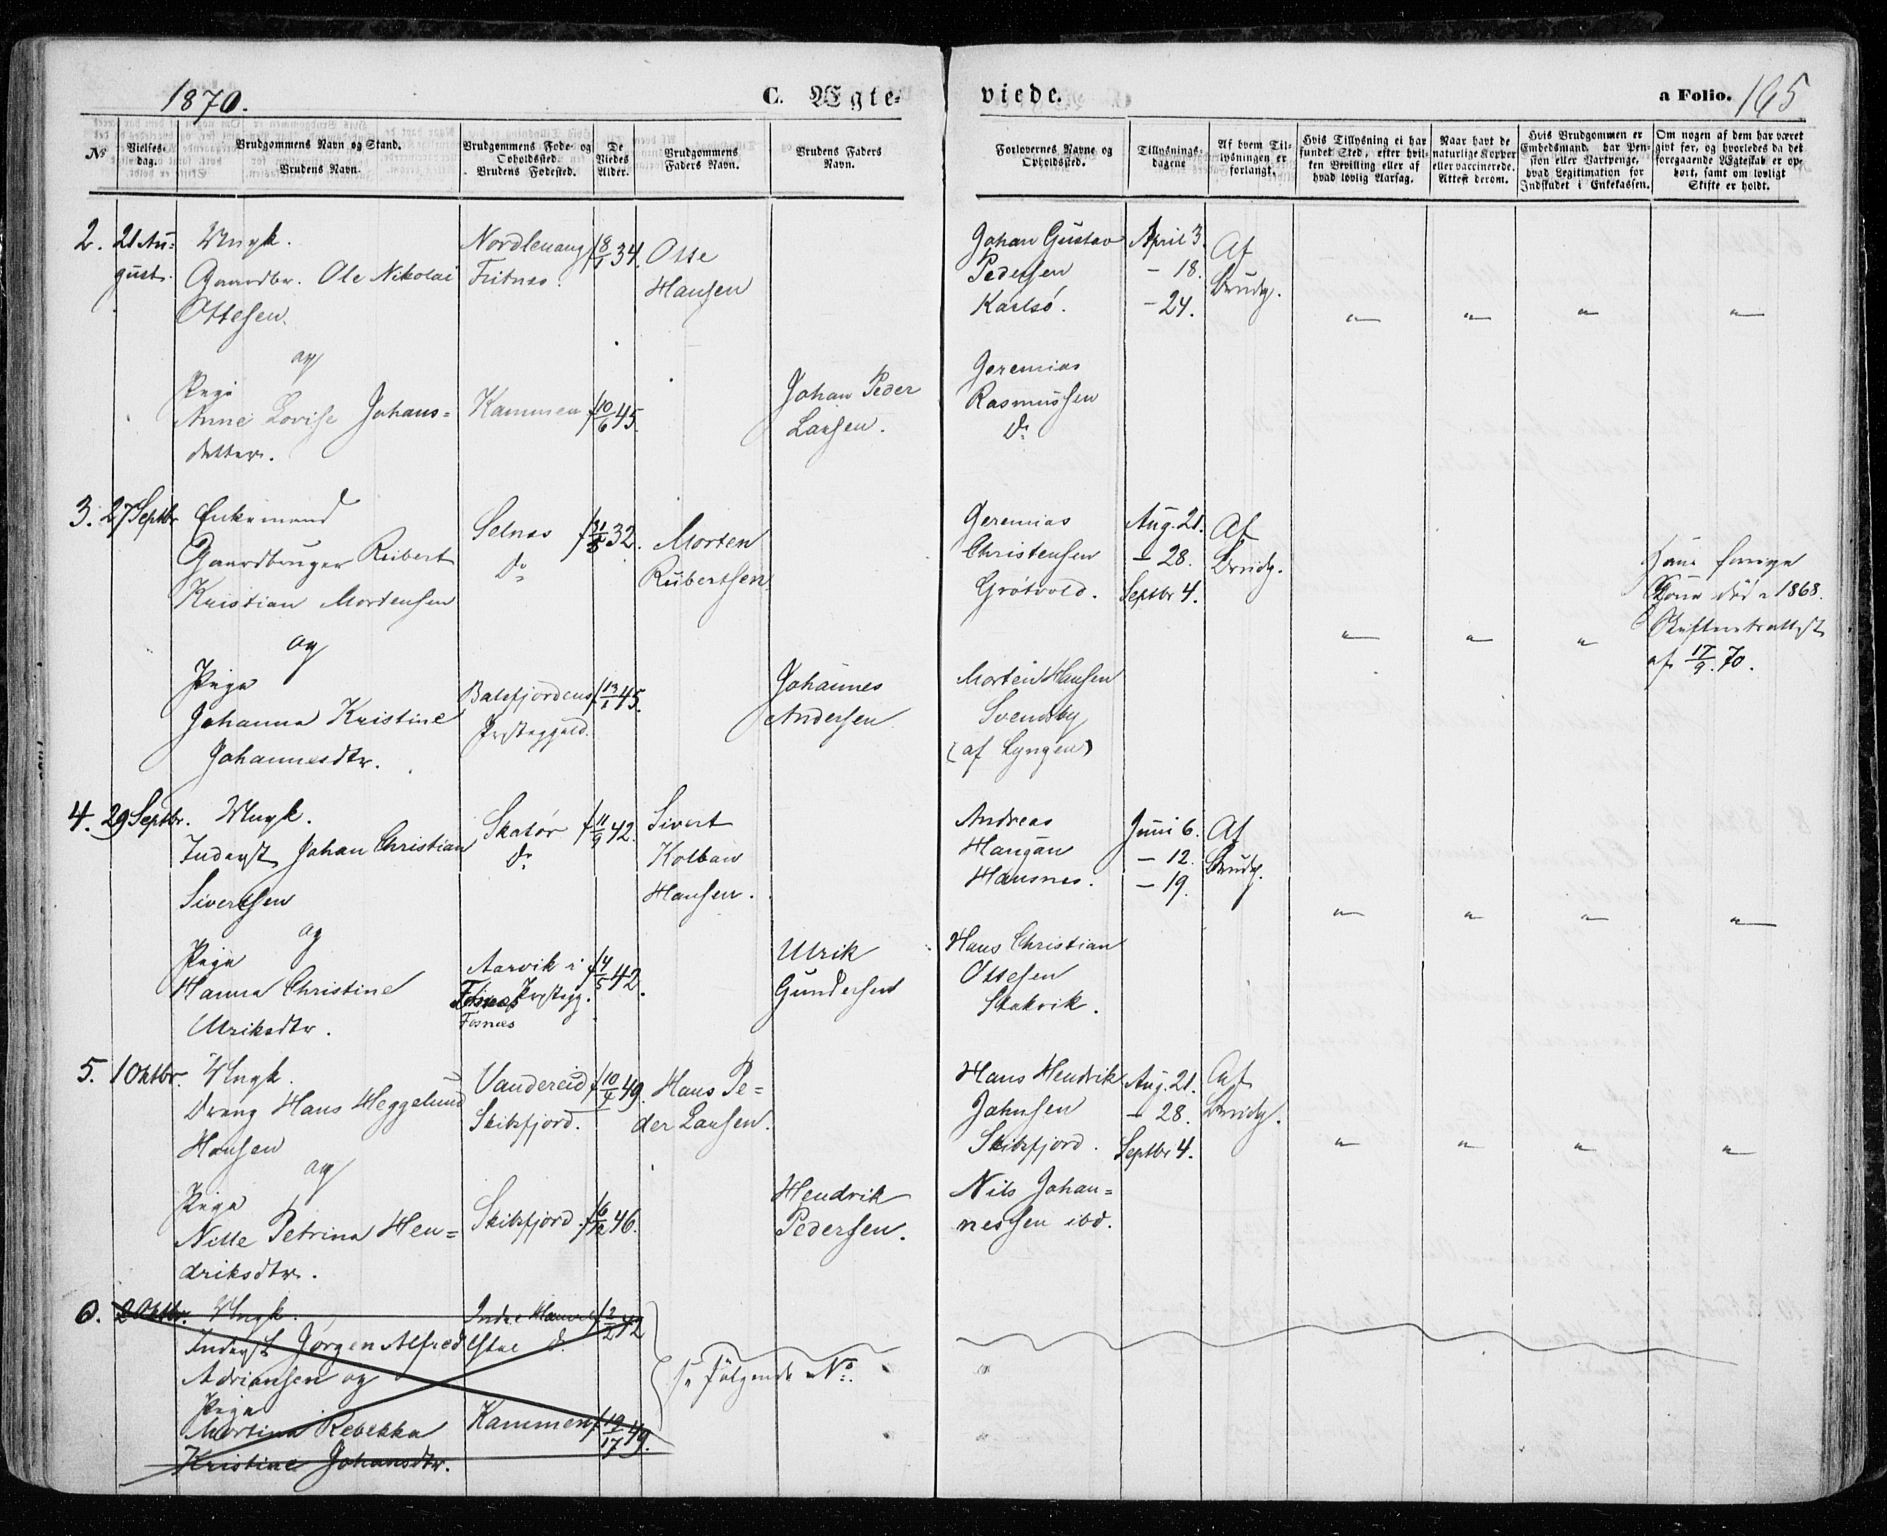 1870.
C. Ægte-
viede.
a Folio. 165
No
Vielses-
dag.
Brudgommens Navn og Stand.
Brudens Navn.
Brudgommens Føde- og
Opholdssted.
Brudens Fødested.
De
Viedes
Alder.
Brudgommens
Faders Navn.
Brudens Faders
Navn.
Forlovernes Navne og
Opholdssted.
Tillysnings-
dagene
Af hvem Til-
lysningen er
forlangt.
Hvis Tillysning ei har
fundet Sted, efter hvil-
ken Bevilling eller af
hvad lovlig Aarsag.
Naar havt de
naturlige Kopper
eller vaccinerede.
Attest derom.
Hvis Brudgommen er
Embedsmand, har Pen-
sion eller Vartpenge,
hvad Legitimation for
Indskudet i Enkekassen.
Om nogen af dem har været
givt før, og hvorledes da det
foregaaende Ægteskab er op-
hørt, samt om lovligt
Skifte er holdt.
2. 21 Au-
gust.
Ungk.
Gaardbr. Ole Nikolai
Ottesen.
og
Pige
Anne Lovise Johans-
datter.
Nordlenang
Fritnes.
Kammen
f 8/1 34.
f 10/6 45.
Otte
Hansen
Johan Peder
Larsen.
Johan Gustav
Pedersen
Karlsø.
Jeremias
Rasmussen
do
April 3.
- 18.
- 24.
Af
Brudg.
" " " "
3. 27 Septbr
Enkemand
Gaardbruger Rubert
Kristian Mortensen
og
Pige
Johanna Kristine
Johannesdtr.
Selnes
do
Balsfjordens
Prstegjeld.
f 31/5 32.
f 13/1 45.
Morten
Rubertsen
Johannes
Andersen
Jeremias
Christensen
Grøtvold.
Morten Hansen
Svendsby
(af Lyngen)
Aug. 21.
- 28.
Septbr 4.
Af
Brudg.
" " "
Hans forrige
Kone død 1868.
Skifteattest
af 17/9. 70.
4. 29 Septbr.
Ungk.
Inderst Johan Christian
Sivertsen
og
Pige
Hanna Christine
Ulriksdtr.
Skatør
do
Aarvik i
Fosnes Prstegj.
Fosnes
f 11/9 42.
f 4/5 42.
Sivert
Kolban
Hansen.
Ulrik
Gundersen
Andreas
Haugan
Hansnes.
Hans Christian
Ottesen
Stakvik.
Juni 6.
- 12.
- 19.
Af
Brudg.
" " " "
5. 1 Oktbr.
Ungk.
Dreng Hans Heggelund
Hansen
og
Pige
Nille Petrina Hen-
driksdtr.
Vandereid
Skibsfjord.
Skibsfjord.
f 10/4 49.
f 6/12 46.
Hans Pe-
der Larsen.
Hendrik
Pedersen.
Hans Hendrik
Johnsen
Skibsfjord.
Nils Johan-
nessen ibd.
Aug. 21.
- 28.
Septbr 4.
Af
Brudg.
" " " "
6. 2 Oktbr.
Ungk.
Inderst Jørgen Alfred
Adriansen og
Pige
Martina Rebekka
Kristine Johansdtr.
Indre
do
Kammen
f 12/2 42
f 19/17 49.
se følgende No.